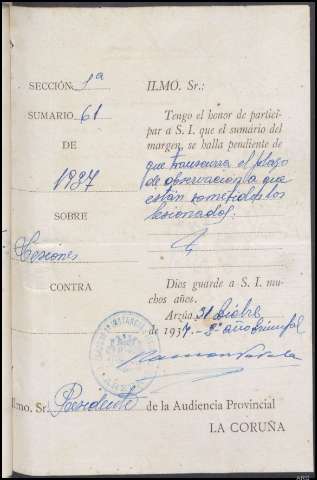 SECCIÓN 1ª
SUMARIO 61
DE
1937
SOBRE
Lesiones
CONTRA
ILMO. Sr.:
Tengo el honor de partici-
par a S. I. que el sumario del
margen, se halla pendiente de
que transcurra el plazo
de observación a que
están sometidos los
lesionados.
Dios guarde a S. I. mu-
chos años.
Arzúa 31 Dicbre
de 1937. - 2º año triunfal
Ilmo. Sr. Presidente de la Audiencia Provincial
LA CORUÑA